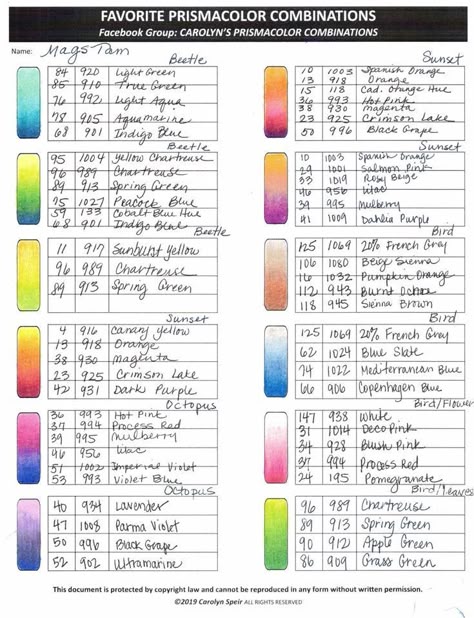 FAVORITE PRISMACOLOR COMBINATIONS
Facebook Group: CAROLYN'S PRISMACOLOR COMBINATIONS
Name: Mags Tam
Beetle
84 920 Light Green
85 910 True Green
76 992 Light Aqua
78 905 Aquamarine
68 901 Indigo Blue
Beetle
95 1004 Yellow Chartreuse
96 989 Chartreuse
89 913 Spring Green
75 1027 Peacock Blue
59 133 Cobalt Blue Hue
68 901 Indigo Blue
Beetle
11 917 Sunburst Yellow
96 989 Chartreuse
89 913 Spring Green
Sunset
4 916 Canary Yellow
13 918 Orange
38 930 Magenta
23 925 Crimson Lake
42 931 Dark Purple
Octopus
36 993 Hot Pink
37 994 Process Red
39 995 Mulberry
46 956 Lilac
51 1002 Imperial Violet
53 993 Violet Blue
Octopus
40 934 Lavender
47 1008 Parma Violet
50 996 Black Grape
52 902 Ultramarine
Sunset
10 1003 Spanish Orange
13 918 Orange
15 118 Cad. Orange Hue
36 993 Hot Pink
38 930 Magenta
23 925 Crimson Lake
50 996 Black Grape
Sunset
10 1003 Spanish Orange
29 1001 Salmon Pink
33 1019 Rosy Beige
46 956 Lilac
39 995 Mulberry
41 1009 Dahlia Purple
Bird
125 1069 20% French Gray
106 1080 Beige Sienna
16 1032 Pumpkin Orange
112 943 Burnt Ochre
118 945 Sienna Brown
Bird
125 1069 20% French Gray
62 1024 Blue Slate
74 1022 Mediterranean Blue
66 906 Copenhagen Blue
Bird/Flower
147 938 White
31 1014 Deco Pink
34 928 Blush Pink
37 994 Process Red
24 195 Pomegranate
Bird/Leaves
96 989 Chartreuse
89 913 Spring Green
90 912 Apple Green
86 909 Grass Green
This document is protected by copyright law and cannot be reproduced in any form without written permission.
©2019 Carolyn Speir ALL RIGHTS RESERVED